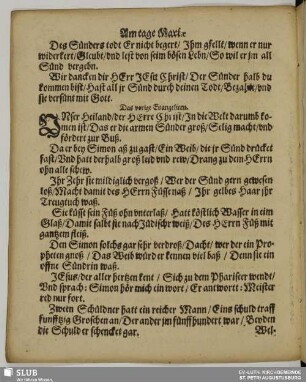 Am tage Mariæ
Des Sünders todt Er nicht begert / Jhm gfellt / wenn er nur
widerkert / Gleubt / vnd lest von seim bösen Lebn / So wil er jm all
Sünd vergebn.
Wir dancken dir HErr JEsu Christ / Der Sünder halb du
kommen bist / Hast all jr Sünd durch deinen Todt / Bezalt / vnd
sie versünt mit Gott.
Das vorige Euangelium.
VNser Heiland / der HErre Christ / Jn die Welt darumb ko-
men ist / Das er die armen Sünder groß / Selig macht / vnd
fördert zur Buß.
Da er bey Simon aß zu gast / Ein Weib / die jr Sünd drücket
fast / Vnd hatt derhalb groß leid vnd rew / Drang zu dem HErrn
ohn alle schew.
Jhr Zehr sie mildiglich vergoß / Wer der Sünd gern gewesen
loß / Macht damit des HErrn Füsse naß / Jhr gelbes Haar jhr
Treugtuch waß.
Sie küsset sein Füß ohn vnterlaß / Hatt köstlich Wasser in eim
Glaß / Damit salbt sie nach Jüdischr weiß / Des HErrn Füß mit
gantzem fleiß.
Den Simon solchs gar sehr verdroß / Dacht / wer der ein Pro-
pheten gnoß / Das Weib würd er kennen viel baß / Denn sie ein
offne Sündrin waß.
JEsus / der aller hertzen kent / Sich zu dem Phariseer wendt /
Vnd sprach: Simon hör mich ein wort / Er antwort: Meister
red nur fort.
Zween Schüldner hatt ein reicher Mann / Eins schuld traff
funfftzig Groschen an / Der ander jm fünffhundert war / Beyden
die Schuld er schencket gar.
Wel-
SLUB
Wir führen Wissen.
EV.-LUTH. KIRCHGEMEINDE
ST. PETRI AUGUSTUSBURG